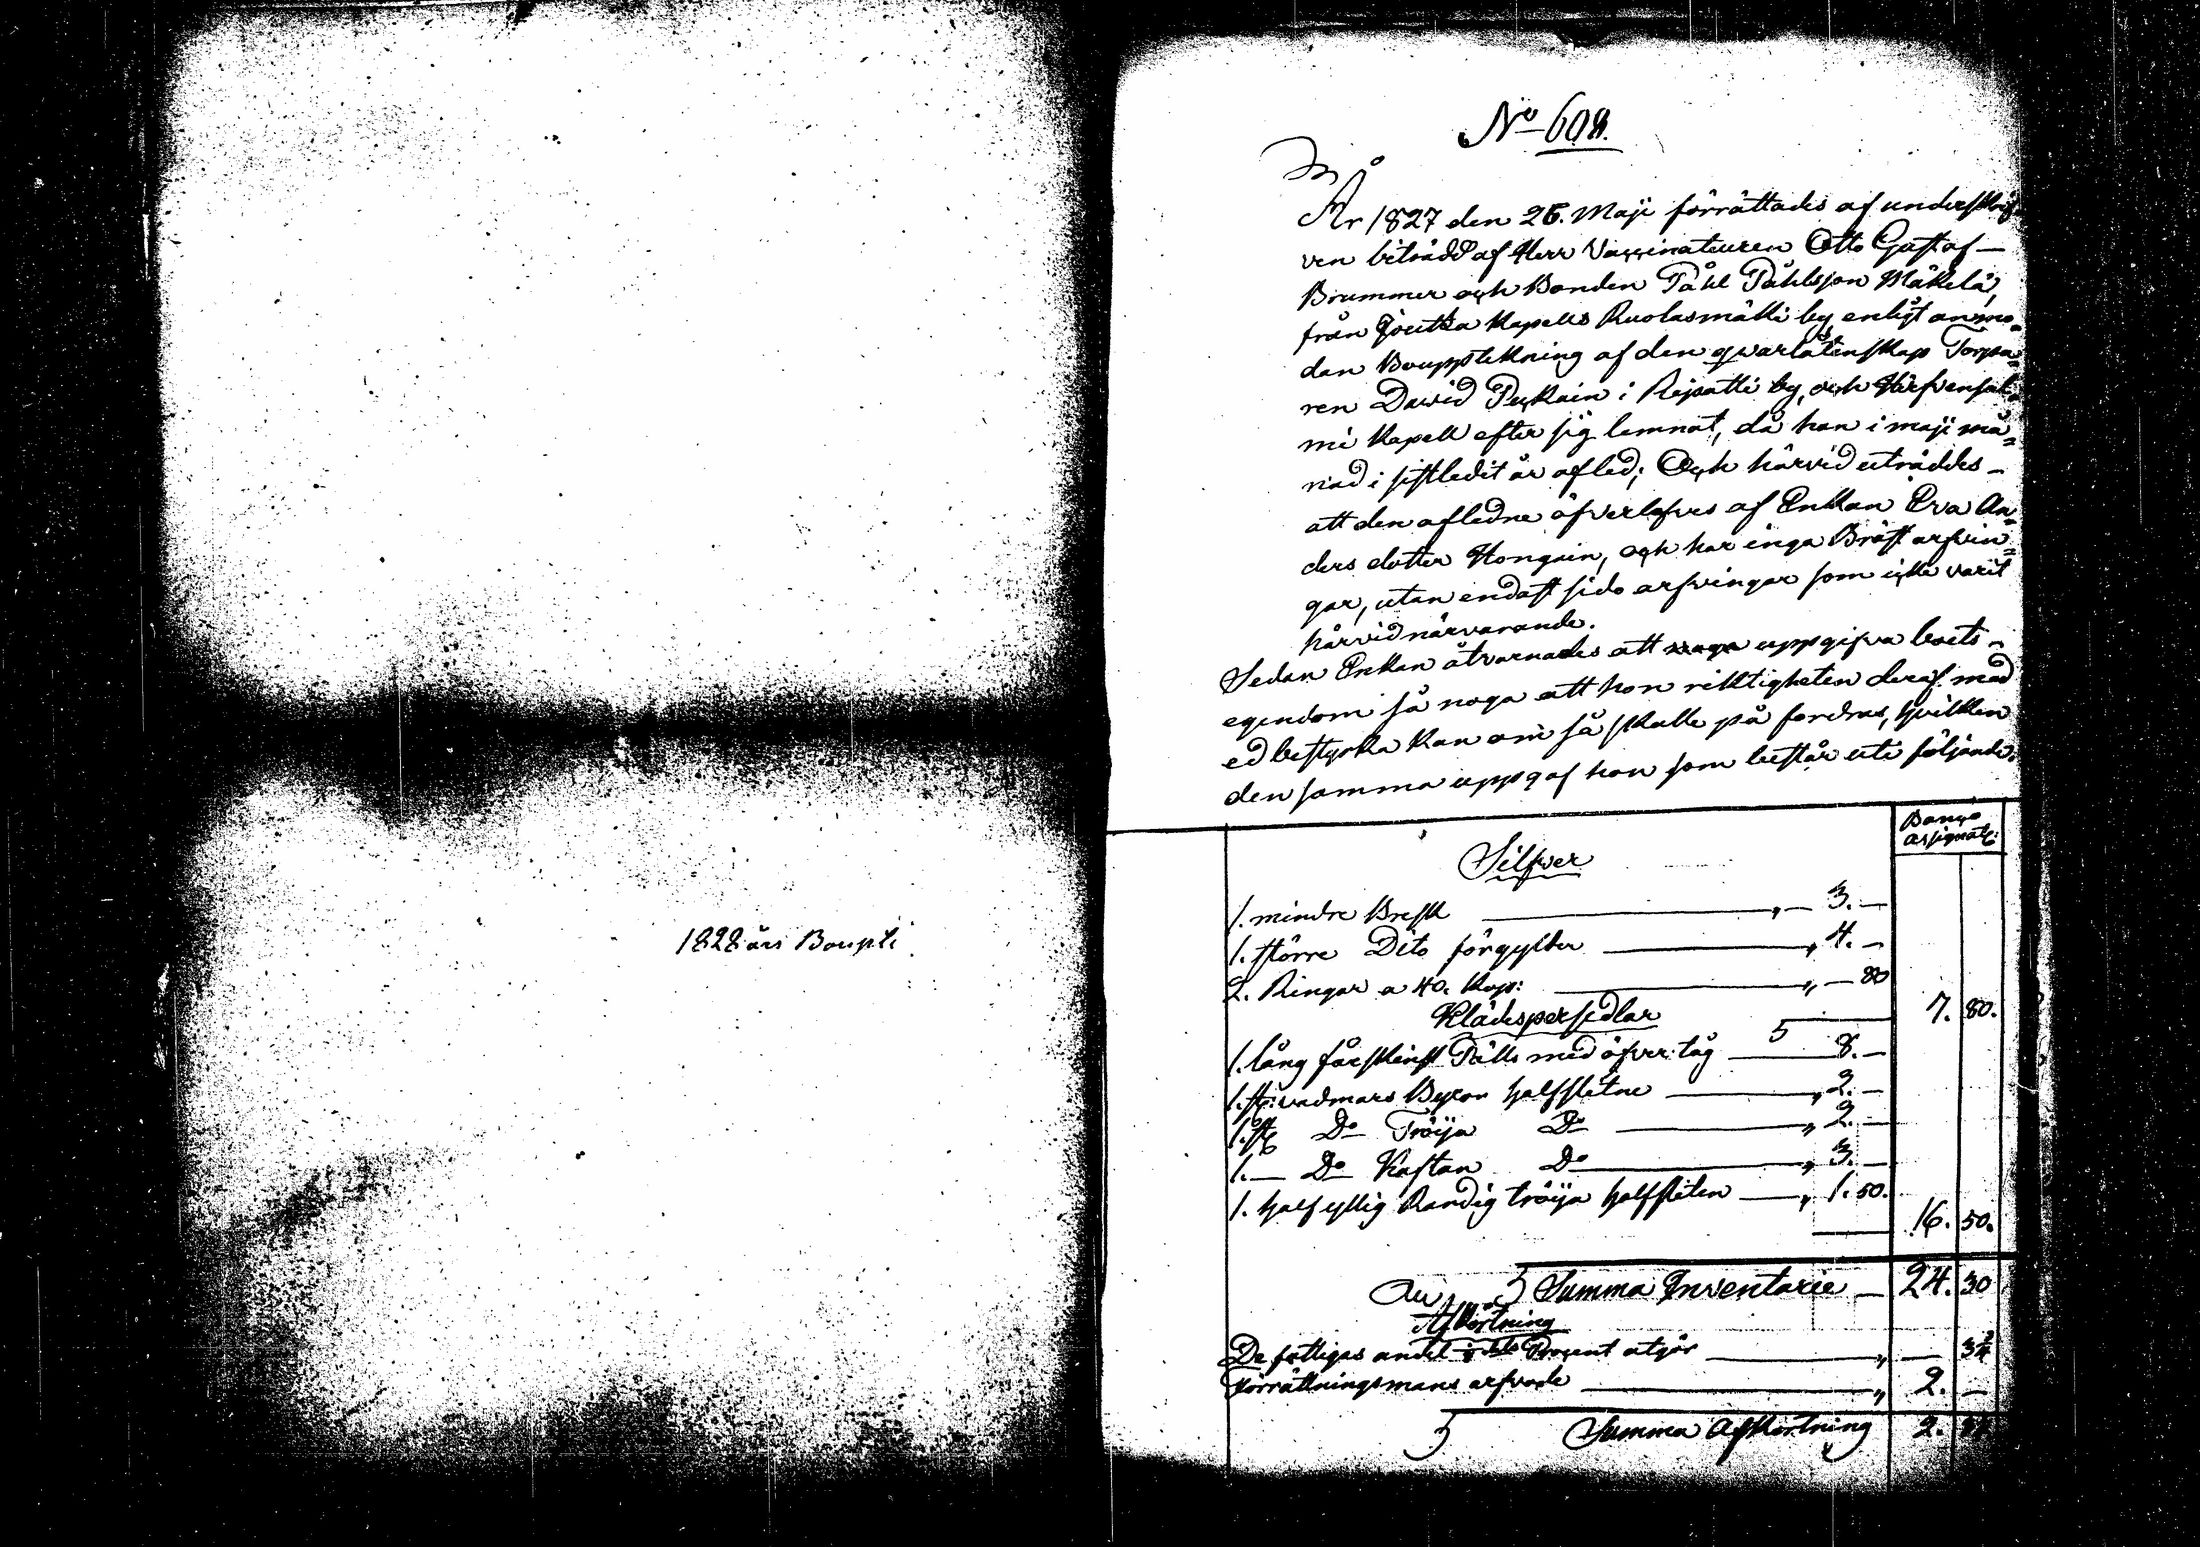 1828 års Boupti
No 608.
År 1827 den 26. Maji förrättades af underskrif-
ven biträdd af Herr Vaccinateuren Otto Gustaf
Brummer och Bonden Påhl Påhlsson Mäkelä,
från Joutsa Kapells Ruolasmäki by enligt anmo-
dan Bouppteckning af den qvarlåtenskap Torpa-
ren David Puckain i Rejpatti by, och Hirfvensal-
mi Kapell efter sig lemnat, då han i maji må-
nad i sistledit år afled; Och härvid uträddes
att den aflednе öfverlefves af Enkan Eva An-
ders dotter Hongain, och har inga Bröst arfvin-
gar, utan endast sido arfvingar som icke varit
härvid närvarande.
Sedan Enkan åtvarnades att uppgifva boets
egendom så noga att hon riktigheten deraf med
ed bestyrka kan om så skulle på fordras, hvilken
den samma uppgaf hon som består uti följande.
Banco
assignat:
Silfver
1. mindre Bresk — „ — 3. —
1. större Dito förgylter — „ 4. —
2. Ringar a 40. Kop: — „ — 80
7. 80.
Klädespersedlar
1. lång fårskins Pälls med öfver tåg — 8. —
1. st: vadmars Byxor halfslitne — „ 2. —
1. st Do Tröija Do — „ 2. —
1. — Do Kaftan Do — „ 3. —
1. halfyllig Randig tröija halfsliten — „ 1. 50.
16. 50.
Summa Inventarie — 24. 30
Afkortning
De fattigas andel Procent utgör — „ —
Förrättningsmans arfvode — „ 2. —
Summa Afkortning 2.